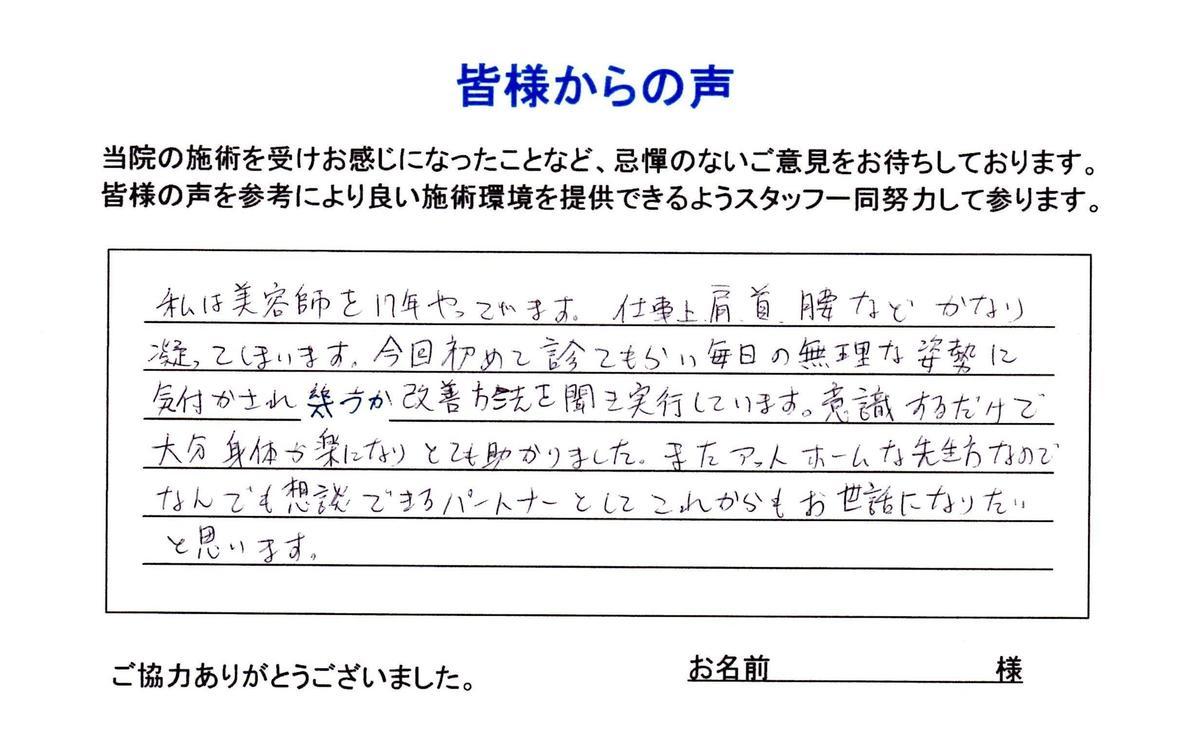 皆様からの声
当院の施術を受けお感じになったことなど、忌憚のないご意見をお待ちしております。
皆様の声を参考により良い施術環境を提供できるようスタッフ一同努力して参ります。
私は美容師を17年やってます。仕事上肩、首、腰など かなり
凝ってしまいます。今回初めて診てもらい毎日の無理な姿勢に
気付かされ 幾つか 改善方法を聞き実行しています。意識するだけで
大分身体が楽になりとても助かりました。またアットホームな先生方なので
なんでも想談できるパートナーとしてこれからもお世話になりたい
と思います。
ご協力ありがとうございました。
お名前 様